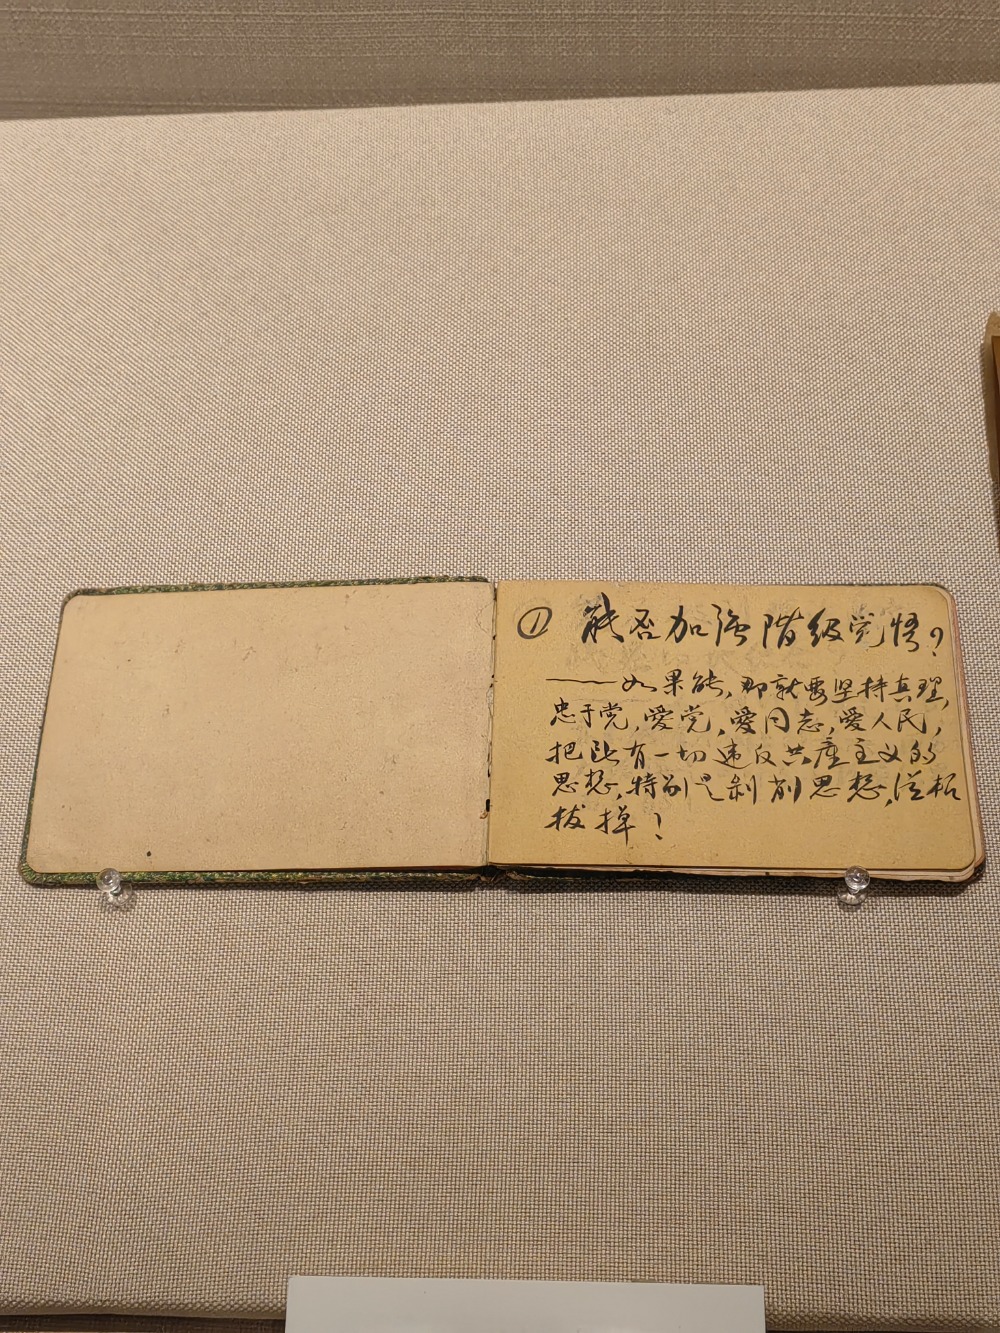 ① 能否加强階级觉悟？
——如果能，那就要坚持真理，
忠于党，愛党，愛同志，愛人民，
把所有一切违反共產主义的
思想，特别是剥削思想，连根
拔掉！